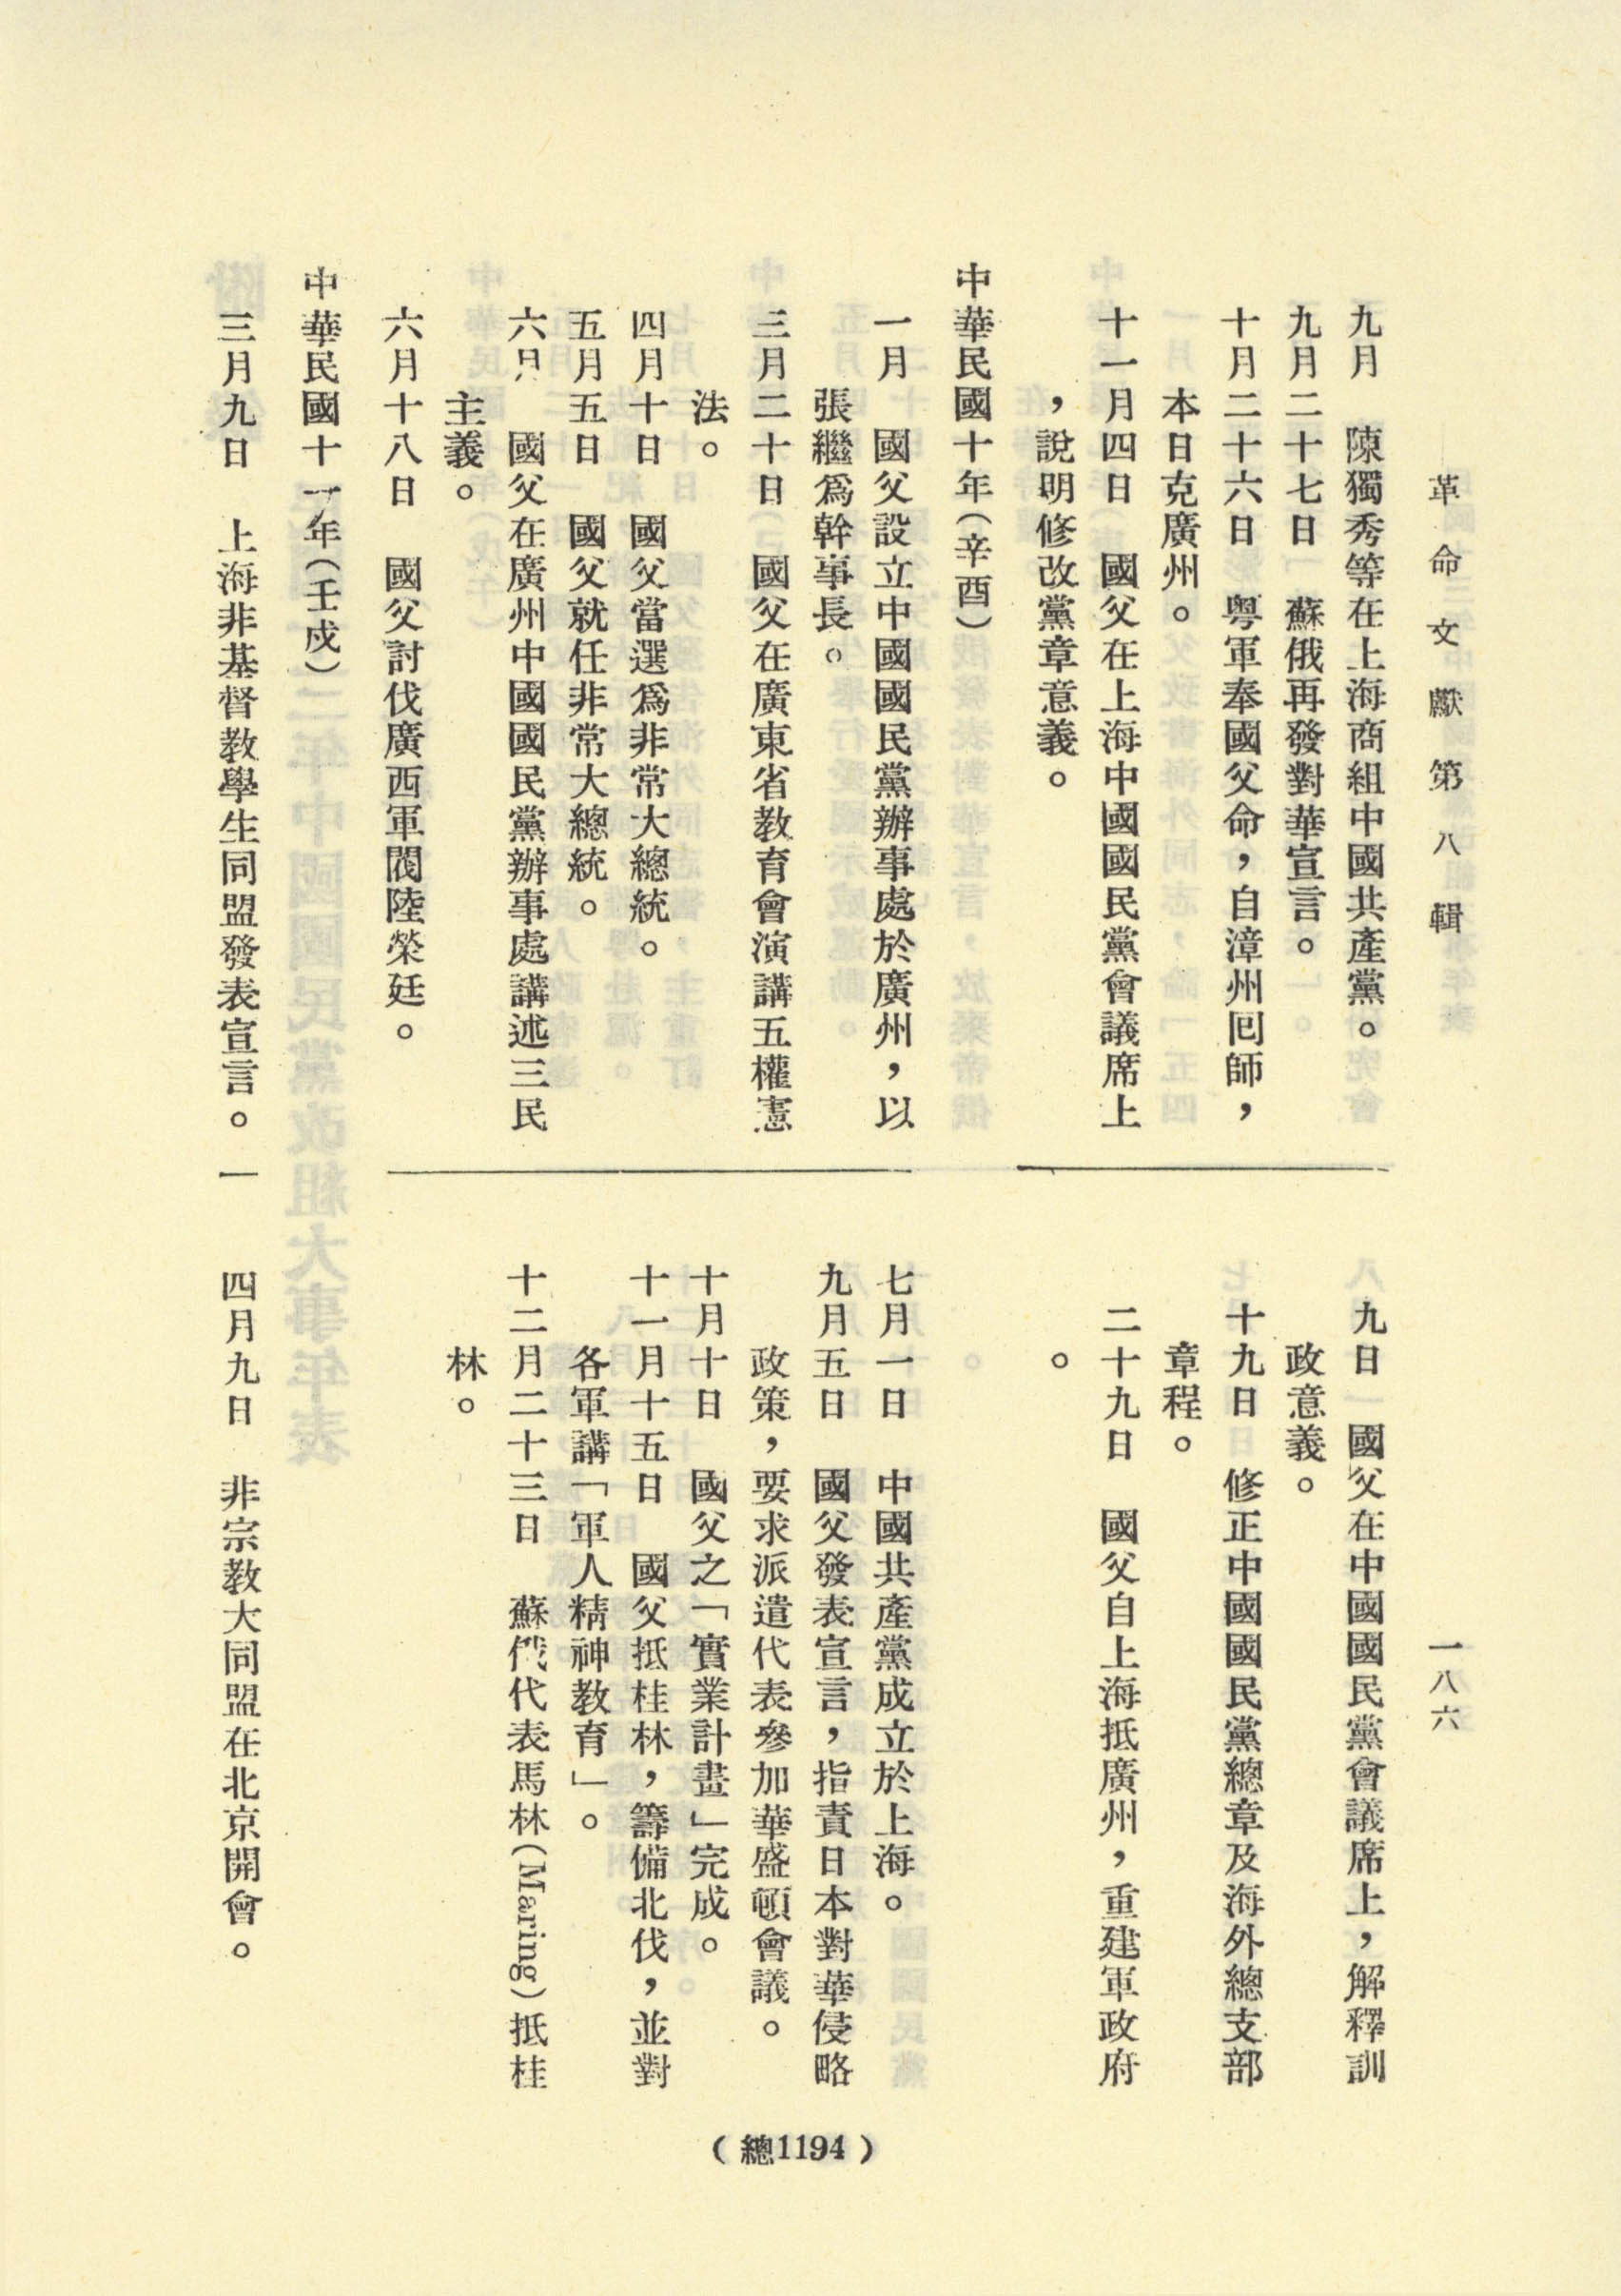 革命文獻第八輯
一八六
九月　陳獨秀等在上海商組中國共產黨。
九月二十七日　蘇俄再發對華宣言。
十月二十六日　粵軍奉國父命，自漳州囘師，
本日克廣州。
十一月四日　國父在上海中國國民黨會議席上
，說明修改黨章意義。
九日　國父在中國國民黨會議席上，解釋訓
政意義。
十九日　修正中國國民黨總章及海外總支部
章程。
二十九日　國父自上海抵廣州，重建軍政府
。
中華民國十年（辛酉）
一月　國父設立中國國民黨辦事處於廣州，以
張繼爲幹事長。
三月二十日　國父在廣東省教育會演講五權憲
法。
四月十日　國父當選爲非常大總統。
五月五日　國父就任非常大總統。
六月　國父在廣州中國國民黨辦事處講述三民
主義。
六月十八日　國父討伐廣西軍閥陸榮廷。
七月一日　中國共產黨成立於上海。
九月五日　國父發表宣言，指責日本對華侵略
政策，要求派遣代表參加華盛頓會議。
十月十日　國父之「實業計畫」完成。
十一月十五日　國父抵桂林，籌備北伐，並對
各軍講「軍人精神教育」。
十二月二十三日　蘇俄代表馬林（Maring）抵桂
林。
中華民國十一年（壬戌）
三月九日　上海非基督教學生同盟發表宣言。
四月九日　非宗教大同盟在北京開會。
（總1194）